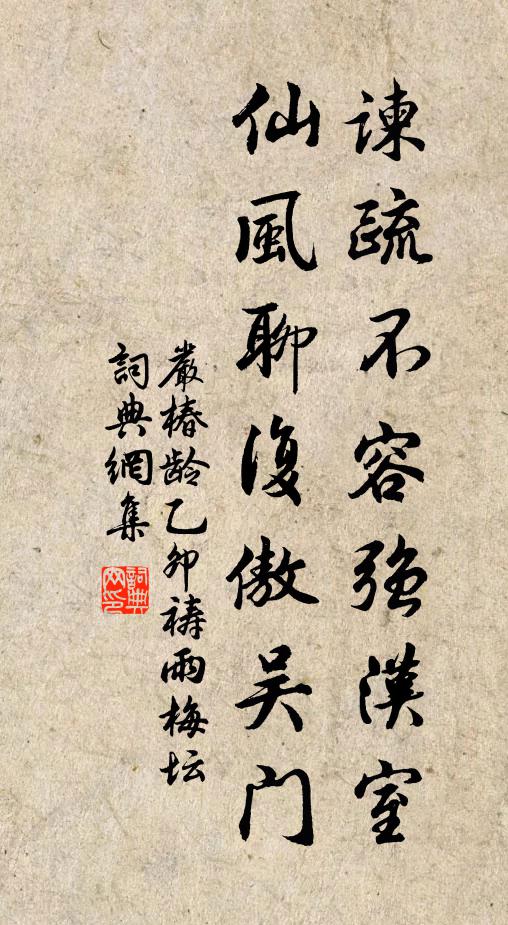 諫疏不容強漢室
仙風聊復傲吴门
嚴椿龄乙卯禱雨梅坛
詞典網集
詞典网印